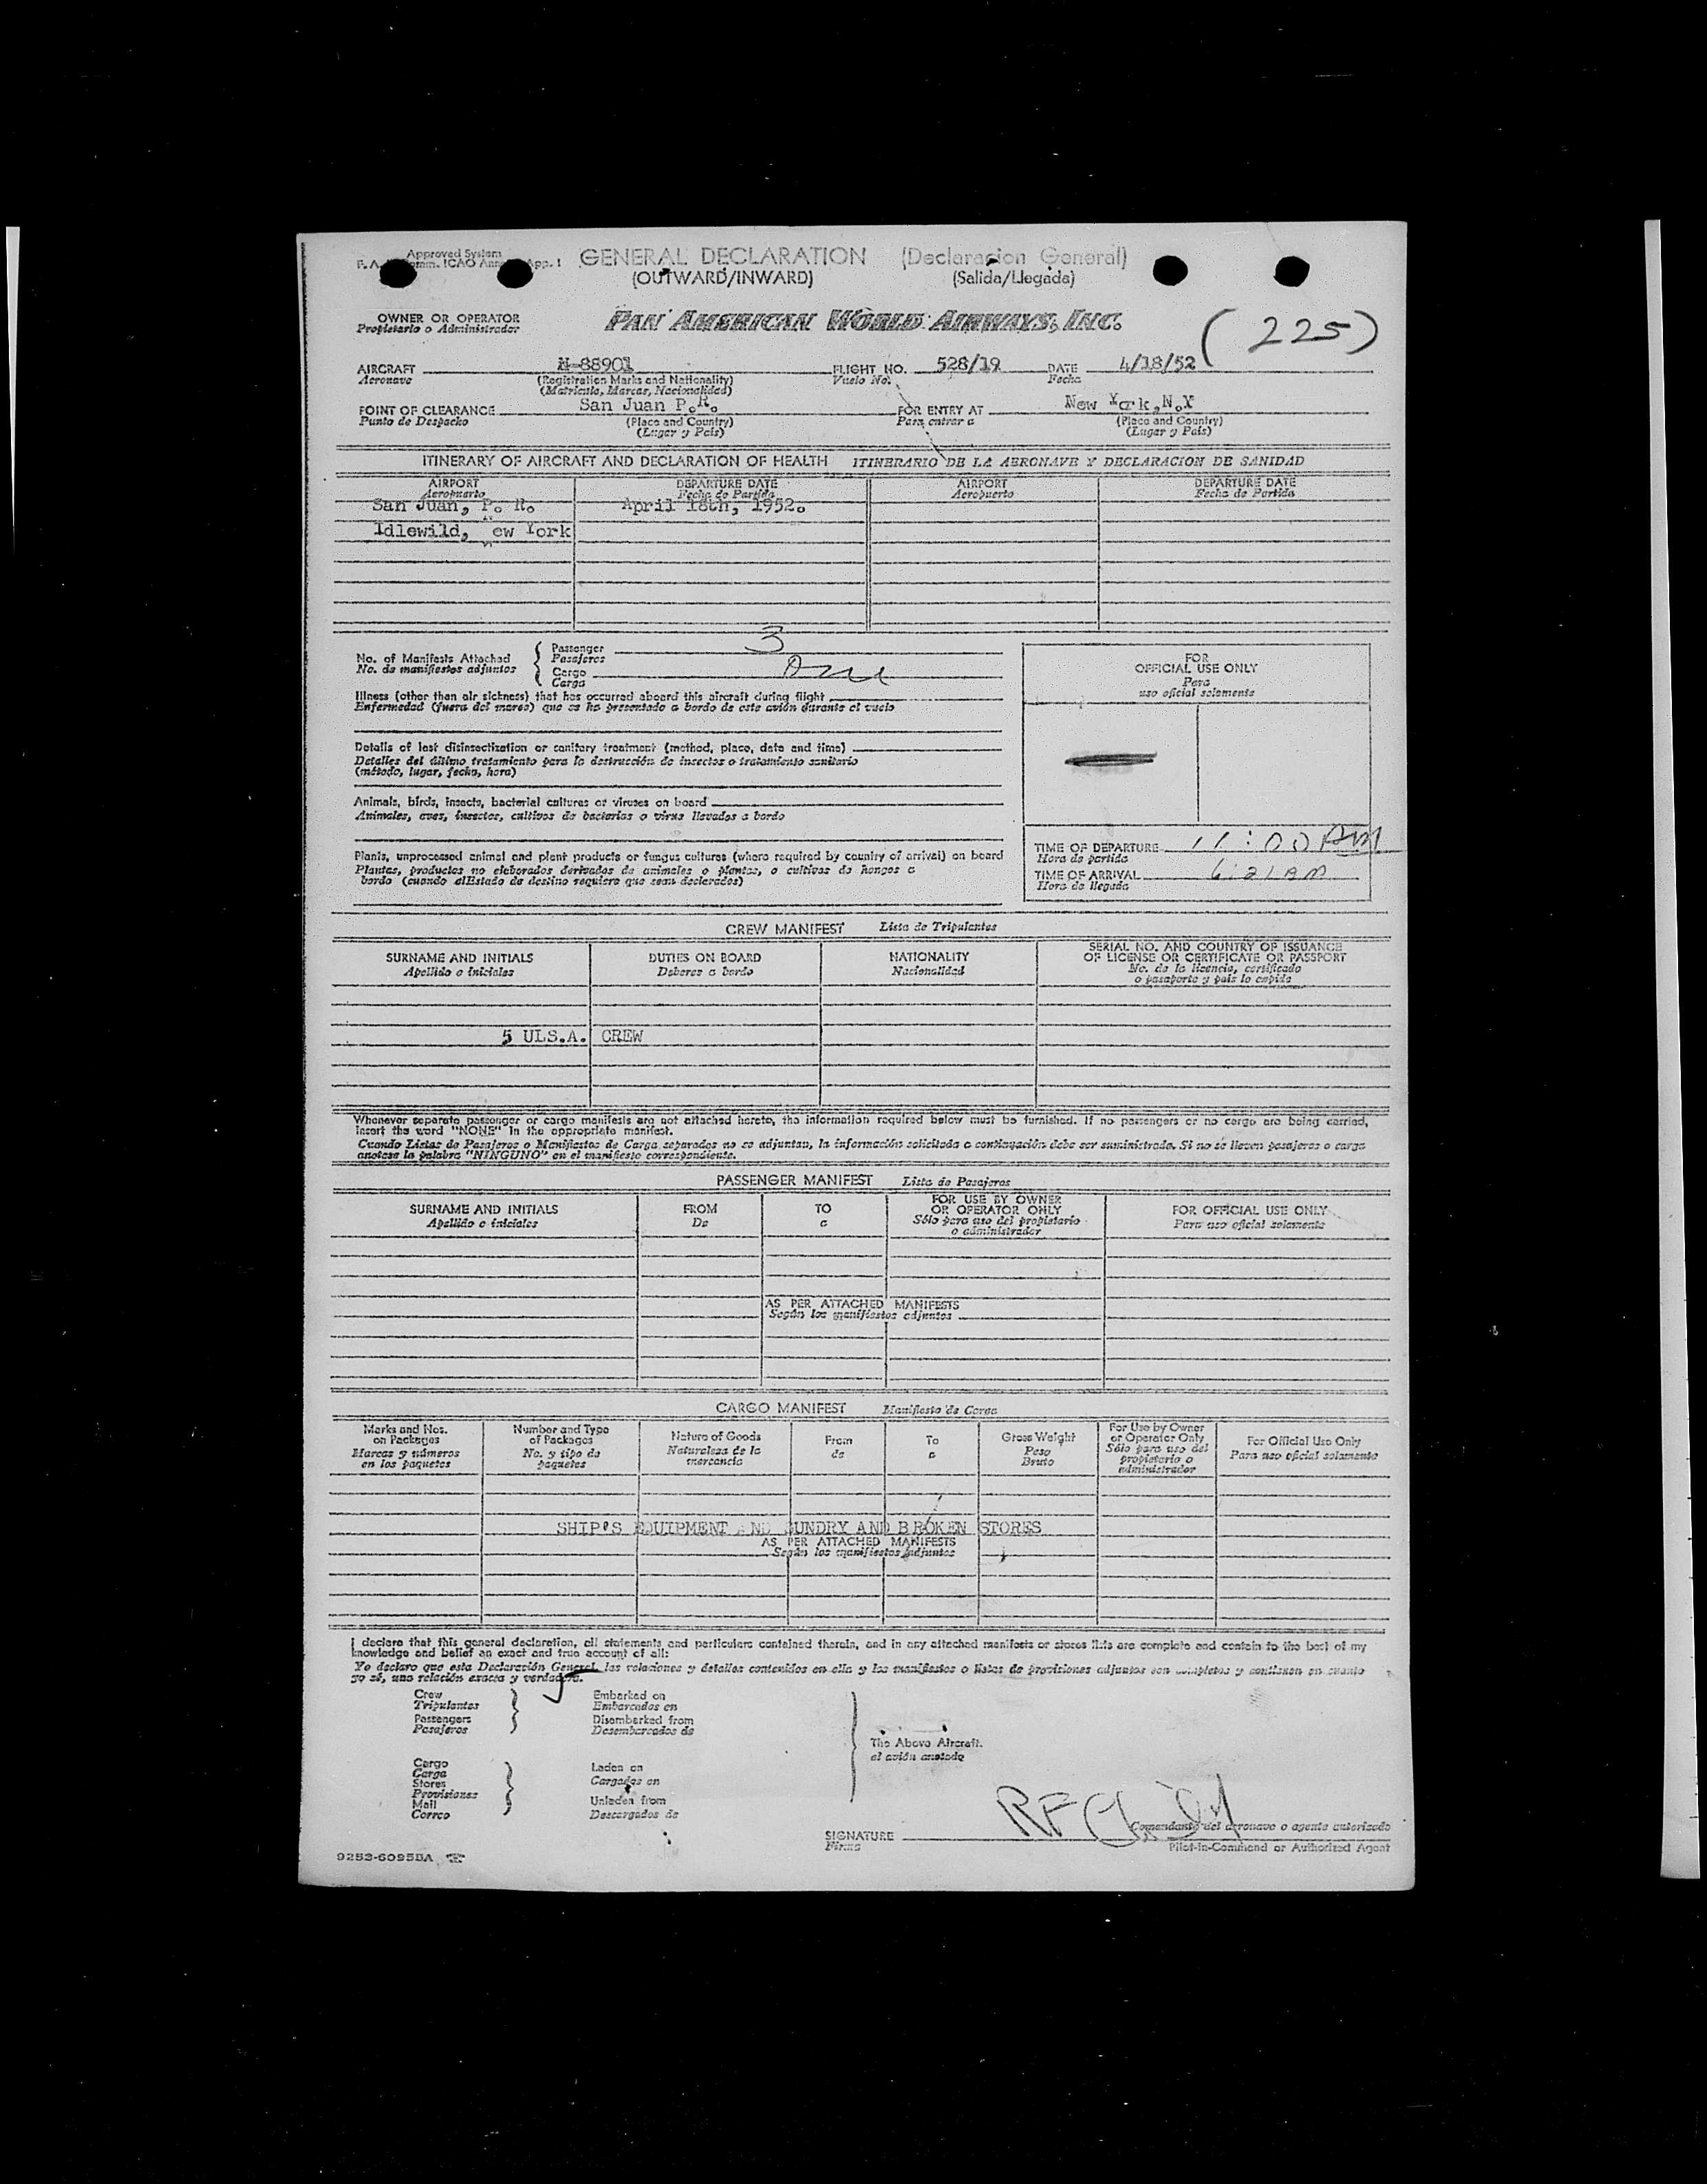 Approved System
GENERAL DECLARATION (Declaracion General)
(OUTWARD/INWARD) (Salida/Llegada)
OWNER OR OPERATOR
Propietario o Administrador
PAN AMERICAN WORLD AIRWAYS, INC.
(225)
AIRCRAFT N-88901 FLIGHT NO. 528/19 DATE 4/18/52
Aeronave (Registration Marks and Nationality) Vuelo No. Fecha
(Matricula, Marcas, Nacionalidad)
POINT OF CLEARANCE San Juan P.R. FOR ENTRY AT New York, N.Y
Punto de Despacho (Place and Country) Para entrar a (Place and Country)
(Lugar y País) (Lugar y País)
ITINERARY OF AIRCRAFT AND DECLARATION OF HEALTH ITINERARIO DE LA AERONAVE Y DECLARACION DE SANIDAD
AIRPORT DEPARTURE DATE AIRPORT DEPARTURE DATE
Aeropuerto Fecha de Partida Aeropuerto Fecha de Partida
San Juan, P. R. April 18th, 1952.
Idlewild, New York
No. of Manifests Attached
No. de manifiestos adjuntos
Passenger 3
Pasajeros
Cargo
Carga
Illness (other than air sickness) that has occurred aboard this aircraft during flight
Enfermedad (fuera del mareo) que se ha presentado a bordo de este avión durante el vuelo
Details of last disinsectization or sanitary treatment (method, place, date and time)
Detalles del último tratamiento para la destrucción de insectos o tratamiento sanitario
(método, lugar, fecha, hora)
Animals, birds, insects, bacterial cultures or viruses on board
Animales, aves, insectos, cultivos de bacterias o virus llevados a bordo
Plants, unprocessed animal and plant products or fungus cultures (where required by country of arrival) on board
Plantas, productos no elaborados derivados de animales o plantas, o cultivos de hongos a
bordo (cuando elEstado de destino requiera que sean declarados)
FOR
OFFICIAL USE ONLY
Para
uso oficial solamente
TIME OF DEPARTURE 11:00 AM
Hora de partida
TIME OF ARRIVAL 6:21 AM
Hora de llegada
CREW MANIFEST Lista de Tripulantes
SURNAME AND INITIALS DUTIES ON BOARD NATIONALITY SERIAL NO. AND COUNTRY OF ISSUANCE
OF LICENSE OR CERTIFICATE OR PASSPORT
Apellido e iniciales Deberes a bordo Nacionalidad No. de la licencia, certificado
o pasaporte y país lo expide
5 ULS.A. CREW
Whenever separate passenger or cargo manifests are not attached hereto, the information required below must be furnished. If no passengers or no cargo are being carried,
insert the word "NONE" in the appropriate manifest.
Cuando Listas de Pasajeros o Manifiestos de Carga separados no se adjuntan, la información solicitada a continuación debe ser suministrada. Si no se llevan pasajeros o carga
anotese la palabra "NINGUNO" en el manifiesto correspondiente.
PASSENGER MANIFEST Lista de Pasajeros
SURNAME AND INITIALS FROM TO FOR USE BY OWNER OR OPERATOR ONLY FOR OFFICIAL USE ONLY
Apellido e iniciales De a Sólo para uso del propietario o administrador Para uso oficial solamente
AS PER ATTACHED MANIFESTS
Según los manifiestos adjuntos
CARGO MANIFEST Manifiesto de Carga
Marks and Nos. on Packages Number and Type of Packages Nature of Goods From To Gross Weight For Use by Owner or Operator Only For Official Use Only
Marcas y números en los paquetes No. y tipo de paquetes Naturaleza de la mercancía de a Peso Bruto Sólo para uso del propietario o administrador Para uso oficial solamente
SHIP'S EQUIPMENT AND SUNDRY AND BROKEN STORES
AS PER ATTACHED MANIFESTS
Según los manifiestos adjuntos
I declare that this general declaration, all statements and particulars contained therein, and in any attached manifests or stores lists are complete and contain to the best of my
knowledge and belief an exact and true account of all:
Yo declaro que esta Declaración General, las relaciones y detalles contenidos en ella y los manifiestos o listas de provisiones adjuntos son completos y contienen en cuanto
yo sé, una relación exacta y verdadera.
Crew Embarked on
Tripulantes Embarcados en
Passengers Disembarked from
Pasajeros Desembarcados de
The Above Aircraft.
el avión anotado
Cargo Laden on
Carga Cargados en
Stores
Provisiones
Mail Unladen from
Correo Descargados de
SIGNATURE
Firma
Comandante del aeronave o agente autorizado
Pilot-in-Command or Authorized Agent
9253-6095BA